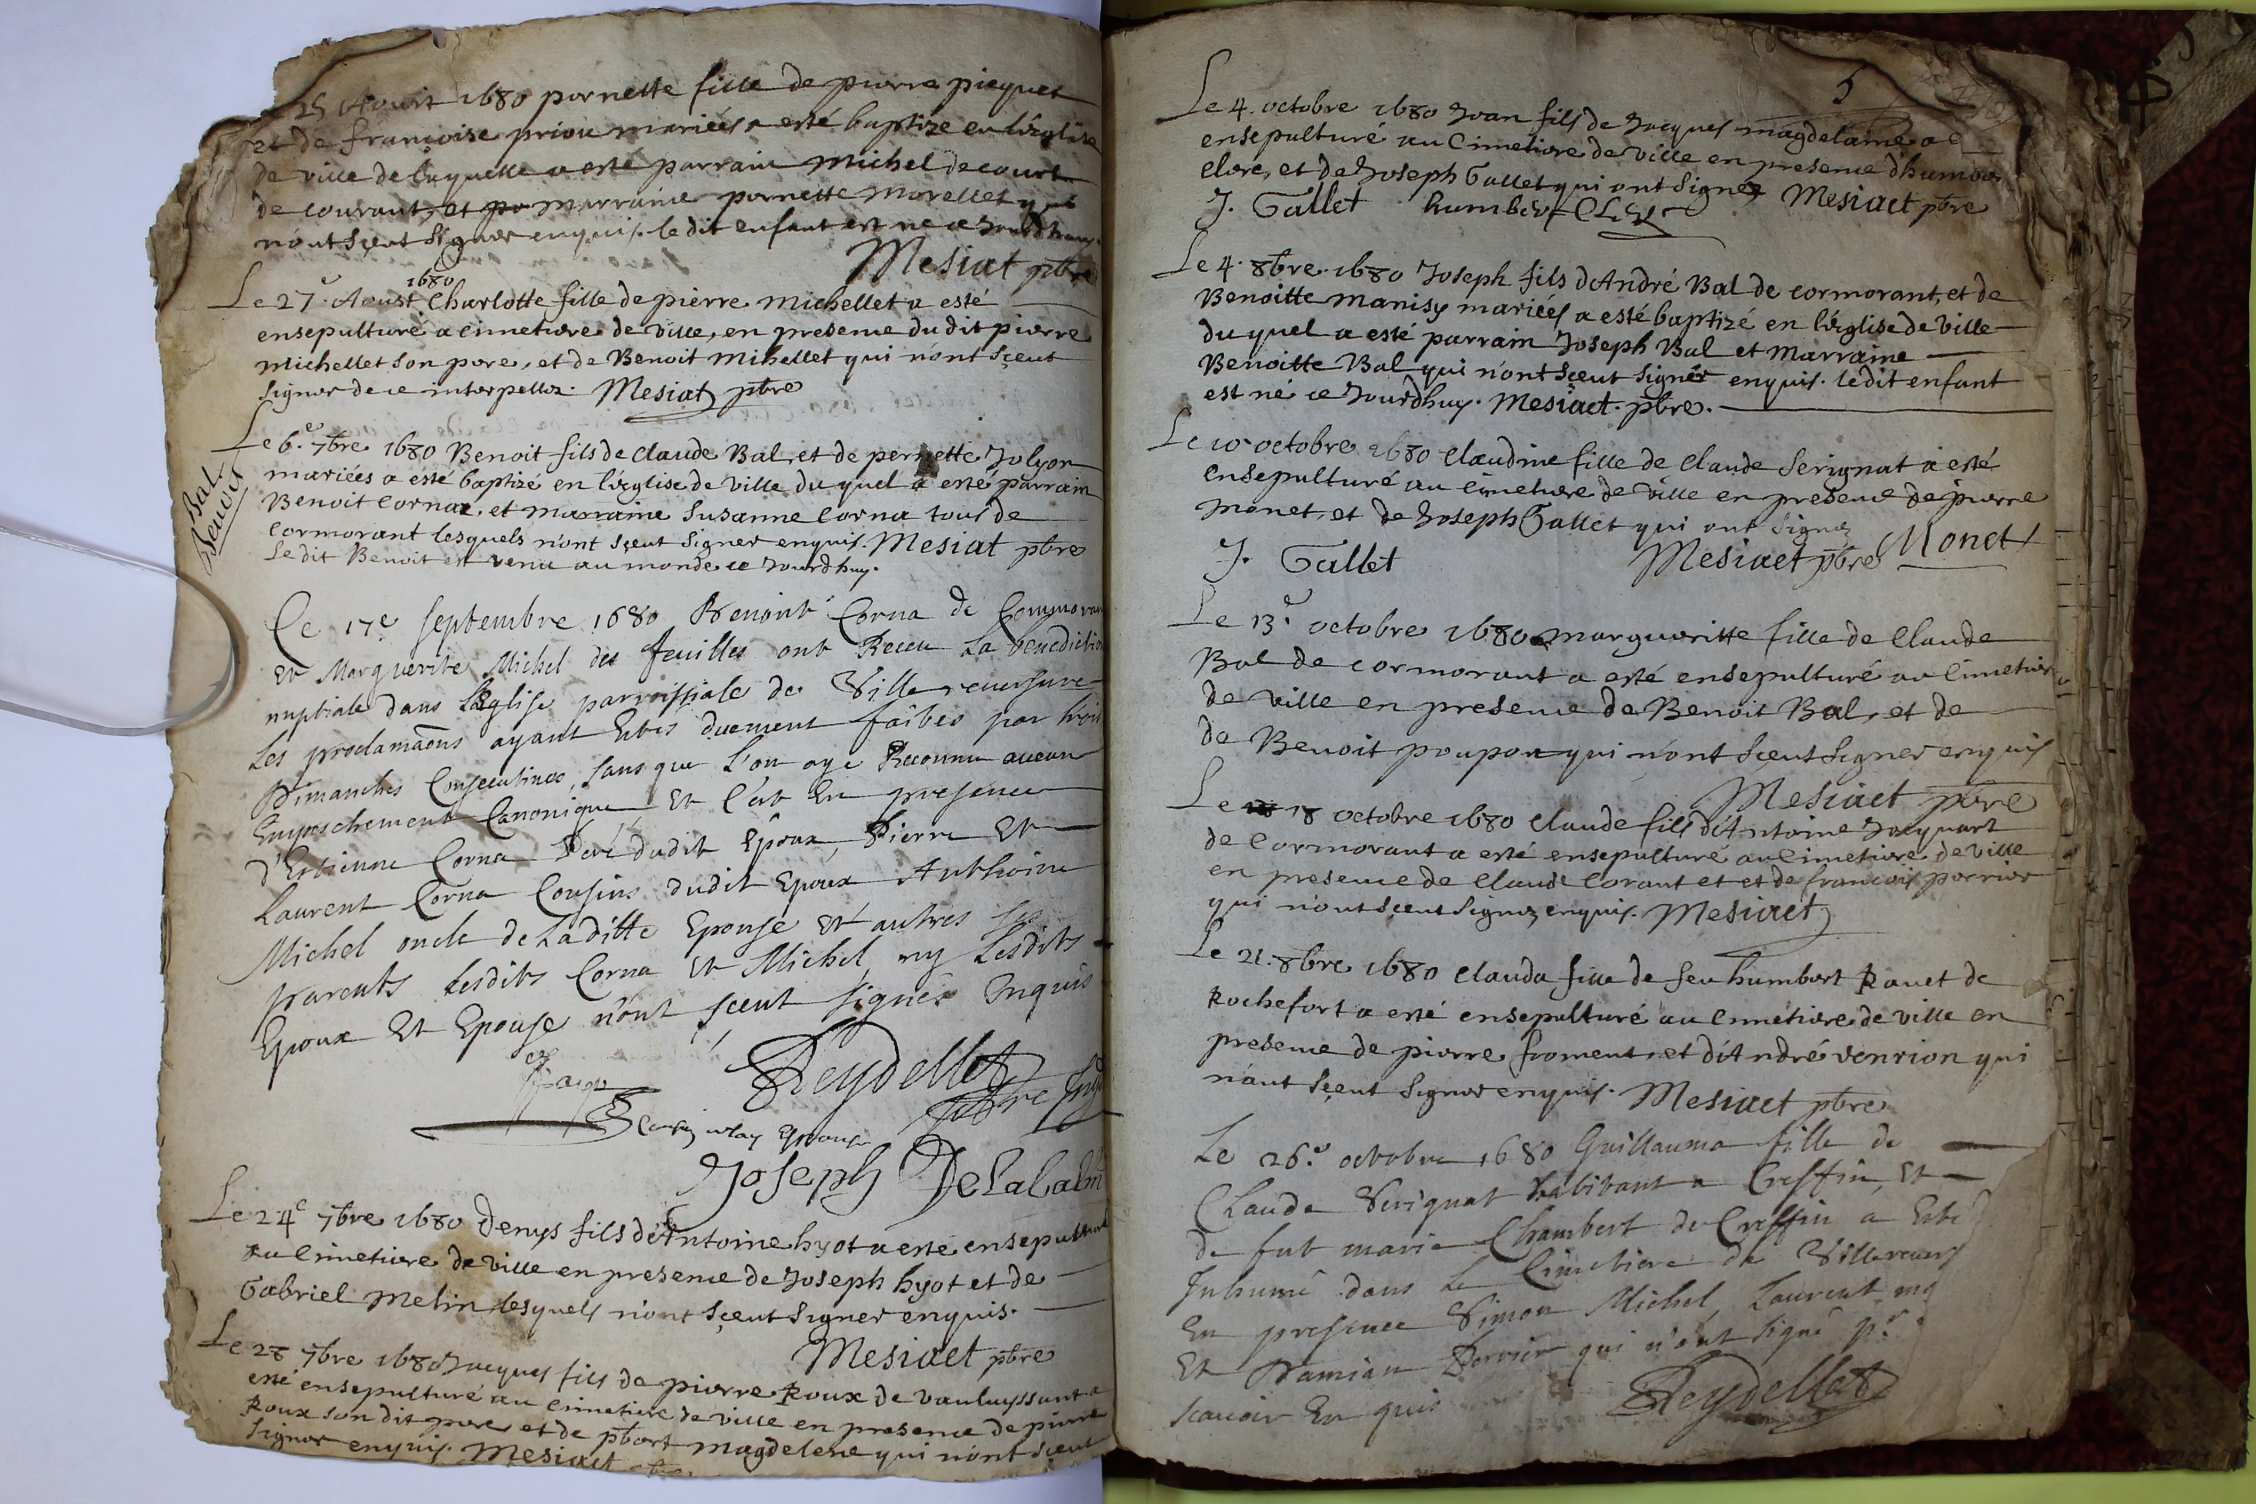 25 Aoust 1680 pernette fille de pierre piequet
et de françoise priou mariées a esté baptize en l'église
de ville de laquelle a esté parrain Michel decourt
de courant, et marraine pernette Morellet qui
n'ont sçeut signer enquis. le dit enfant est né ce Jourdhuy.
Mesiat pbre
Le 27e Aoust 1680 Charlotte fille de pierre Michellet a esté
ensepulturé a cimetiere de ville, en presence du dit pierre
Michellet son pere, et de Benoit Mihellet qui n'ont sçeut
signer de ce interpellez. Mesiat pbre
Bal
Benoit
Le 6.e 7bre 1680 Benoit fils de Claude Bal, et de pernette Jolyon
mariées a esté baptizé en l'église de ville du quel a esté parrain
Benoit Cornaz, et marraine Susanne Corna tous de
Cormorant lesquels n'ont sçeut signer enquis. Mesiat pbre
Le dit Benoit est venu au monde ce Jourdhuy.
Ce 17e septembre 1680 Benoit Corna de Cormoran
et Marguerite Michel des feuilles ont Receu La benediction
nuptiale dans L'eglise parroissiale de Ville reversure
Les proclamaons ayant Estes duement faites par trois
Dimanches Consecutives, sans que L'on aye Reconnu aucun
Empeschement Canonique Et C'est En presence
d'Estienne Corna Pere dudit Epoux, Pierre Et
Laurent Corna Cousins dudit Epoux Anthoine
Michel oncle de Laditte Epouse et autres
parents Lesdits Corna et Michel ny Lesdits
Epoux Et Epouse n'ont sçeut signés Inquis
Reydellet
pbre
Joseph DeLabalm
Le 24e 7bre 1680 Denys fils d'Antoine hyot a esté ensepulturé
au Cimetiere de ville en presence de Joseph hyot et de
Gabriel Melin lesquels n'ont sçeut signer enquis.
Mesiaet pbre
Le 28 7bre 1680 Jacques fils de pierre Roux de vauluyssant a
esté ensepulturé au cimetiere de ville en presence de pierre
Roux son dit pere et de pbert Magdelene qui n'ont sçeut
signer enquis. Mesiaet
5
Le 4. octobre 1680 Jean fils de Jacques Magdelaine a e
ensepulturé au Cimetiere de ville en presence d'humber
Clere, et de Joseph Gallet qui ont signez Mesiaet pbre
J. Gallet humbert
Le 4. 8bre. 1680 Joseph fils d'André Bal de cormorant, et de
Benoitte Manisy mariées a esté baptizé en l'église de ville
du quel a esté parrain Joseph Bal et Marraine
Benoitte Bal qui n'ont sçeut signer enquis. le dit enfant
est né ce Jourdhuy. Mesiaet. pbre.
Le 10 octobre 1680 Claudine fille de Claude Serignat a esté
ensepulturé au cimetiere de ville en presence de pierre
Monet, et de Joseph Gallet qui ont signez
J. Gallet Mesiaet pbre Monet
Le 13.e octobre 1680 Margueritte fille de Claude
Bal de cormorant a esté ensepulturé au Cimetiere
de ville en presence de Benoit Bal, et de
de Benoit poupon qui n'ont sçeut signer enquis
Mesiaet pbre
Le 18 octobre 1680 Claude fils d'Antoine Jacquart
de Cormorant a esté ensepulturé au Cimetiere de ville
en presence de Claude Corant et et de francois perrier
qui n'ont sçeut signez enquis. Mesiaet
Le 21. 8bre 1680 Clauda fille de feu humbert Ravet de
Rochefort a esté ensepulturé au Cimetiere de ville en
presence de pierre froment, et d'André venrion qui
n'ont sçeut signer enquis. Mesiaet pbre
Le 26.e octobre 1680 Guillauma fille de
Claude Serignat habitant a Creffin, Et
de fut marie Chambert de Creffin a Esté
Inhumé dans Le Cimetiere de Villereversure
En presence Simon Michel, Laurent
Et Damian Bornier qui n'ont signé pr
scavoir En quis
Reydellet